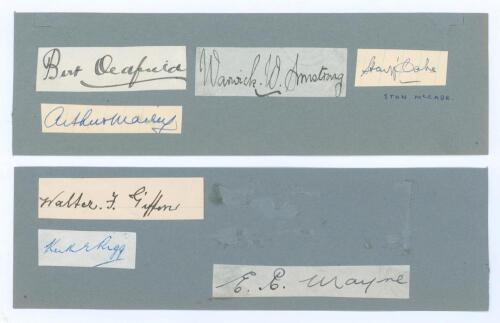 Bert Oldfield
Warwick. W. Armstrong
Stan McCabe
STAN McCABE.
Arthur Mailey
Walter. F. Giffen
Keith E Rigg
E. R. Mayne